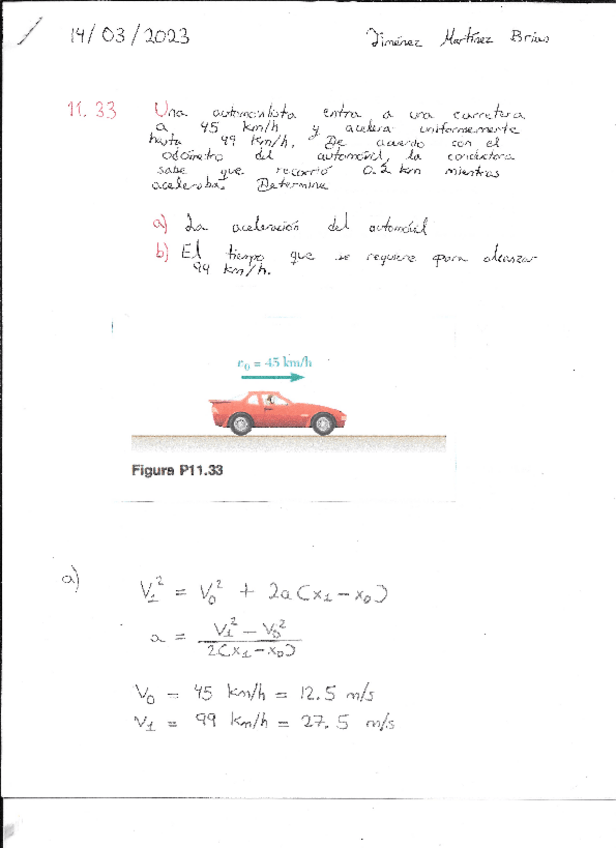 14/03/2023
Jiménez Martínez Brian
11.33 Una automovilista entra a una carretera
a 45 km/h y acelera uniformemente
hasta 99 km/h. De acuerdo con el
odómetro del automóvil, la conductora
sabe que recorrió 0.2 km mientras
aceleraba. Determine
a) La aceleración del automóvil
b) El tiempo que se requiere para alcanzar
99 km/h.
v₀ = 45 km/h
Figura P11.33
a)
V₁² = V₀² + 2a(x₁ - x₀)
a = V₁² - V₀² / 2(x₁ - x₀)
V₀ = 45 km/h = 12.5 m/s
V₁ = 99 km/h = 27.5 m/s